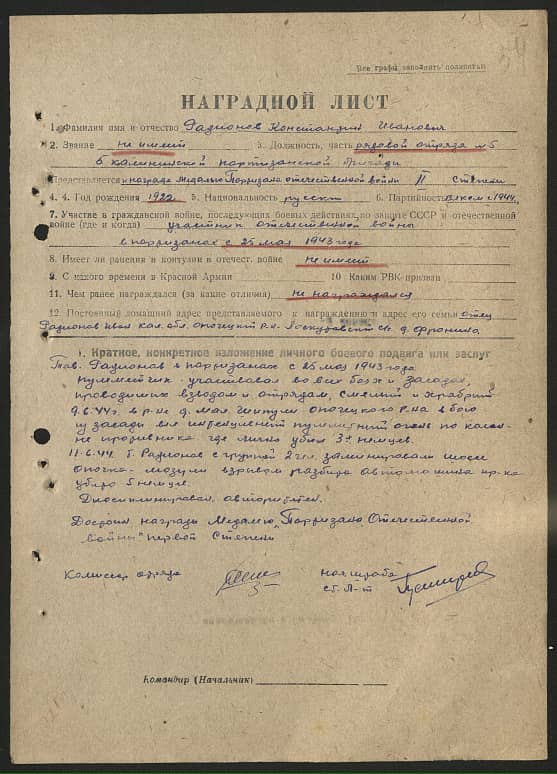 Все графы заполнять полностью
НАГРАДНОЙ ЛИСТ
1. Фамилия имя и отчество Радионов Константин Иванович
2. Звание не имеет 3. Должность, часть рядовой отряда №5
6 калининской партизанской бригады
Представляется к награде Медалью Партизана отечественной войны II степени
4. 4. Год рождения 1922 5. Национальность русский 6. Партийность с 1944 г.
7. Участие в гражданской войне, последующих боевых действиях по защите СССР и отечественной
войне (где и когда) участник отечественной войны
в партизанах с 25 мая 1943 года
8. Имеет ли ранения и контузии в отечест. войне не имеет
9. С какого времени в Красной Армии 10 Каким РВК призван
11. Чем ранее награждался (за какие отличия) не награждался
12 Постоянный домашний адрес представляемого к награждению и адрес его семьи отец
Радионов Иван кал. обл. опочецкий р-н с/с. д.
I. Краткое, конкретное изложение личного боевого подвига или заслуг
Тов. Радионов в партизанах с 25 мая 1943 года
пулеметчик - участвовал во всех боях и засадах,
проводимых взводом и отрядом, смелый и храбрый
9.6.44 г. в р-не д. опочецкого р-на в бою
из засады вел пулеметный огонь по колон-
не противника где лично убил 3х немцев.
11.6.44 т. Радионов с группой 2 чел. заминировали шоссе
опочка- взрывом разбита автомашина пр-ка
убито 5 немцев.
Дисциплинирован, авторитетен.
Достоин награды Медалью „Партизана Отечественной
войны" первой степени
Комиссар отряда нач. штаба
ст. л-т
Командир (Начальник)